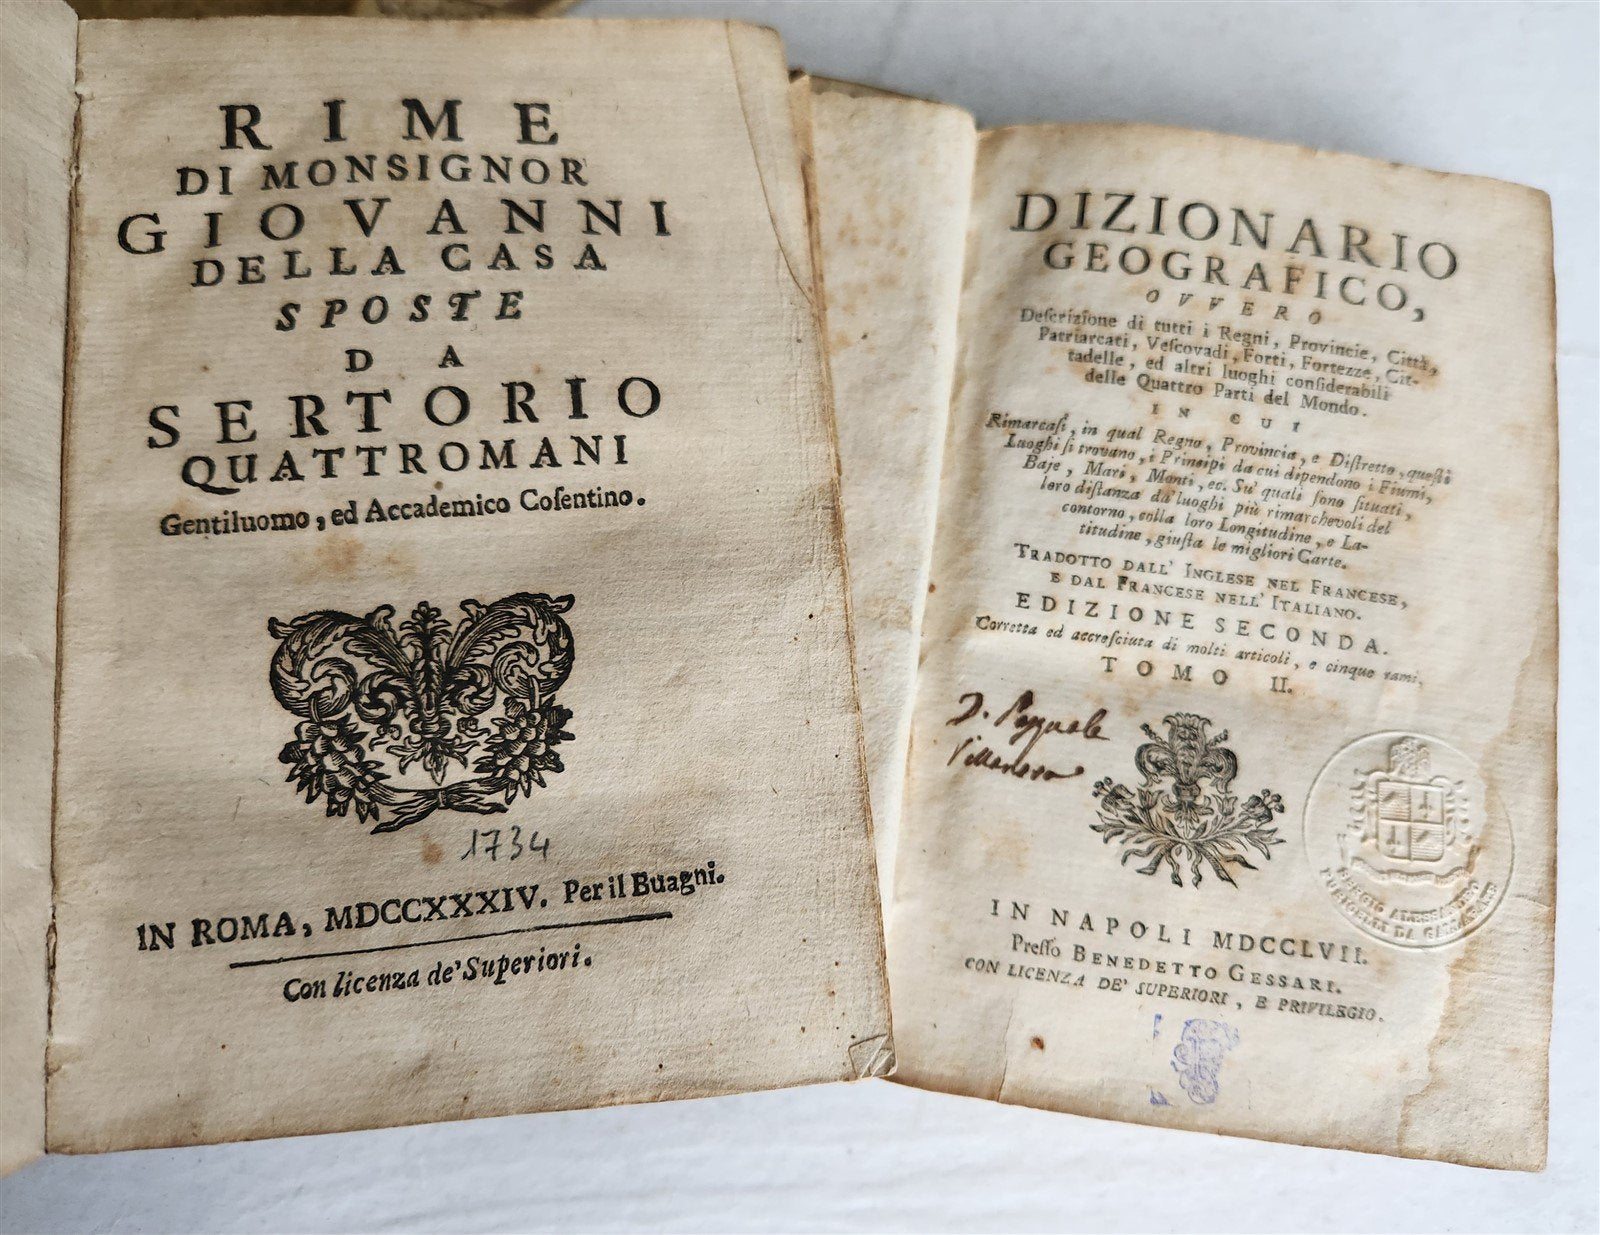 RIME
DI MONSIGNOR
GIOVANNI
DELLA CASA
SPOSTE
DA
SERTORIO
QUATTROMANI
Gentiluomo, ed Accademico Coſentino.
1734
IN ROMA, MDCCXXXIV. Per il Buagni.
Con licenza de' Superiori.
DIZIONARIO
GEOGRAFICO,
OVVERO
Deſcrizione di tutti i Regni, Provincie, Città,
Patriarcati, Veſcovadi, Forti, Fortezze, Cit-
tadelle, ed altri luoghi conſiderabili
delle Quattro Parti del Mondo.
IN CUI
Rimarcaſi, in qual Regno, Provincia, e Diſtretto, queſti
Luoghi ſi trovano, i Principi da cui dipendono i Fiumi,
Baje, Mari, Monti, ec. Su' quali ſono ſituati,
loro diſtanza da' luoghi più rimarchevoli del
contorno, colla loro Longitudine, e La-
titudine, giuſta le migliori Carte.
TRADOTTO DALL' INGLESE NEL FRANCESE,
E DAL FRANCESE NELL' ITALIANO.
EDIZIONE SECONDA.
Corretta ed accreſciuta di molti articoli, e cinque rami,
TOMO II.
D. Pasquale
IN NAPOLI MDCCLVII.
Preſſo BENEDETTO GESSARI.
CON LICENZA DE' SUPERIORI, E PRIVILEGIO.